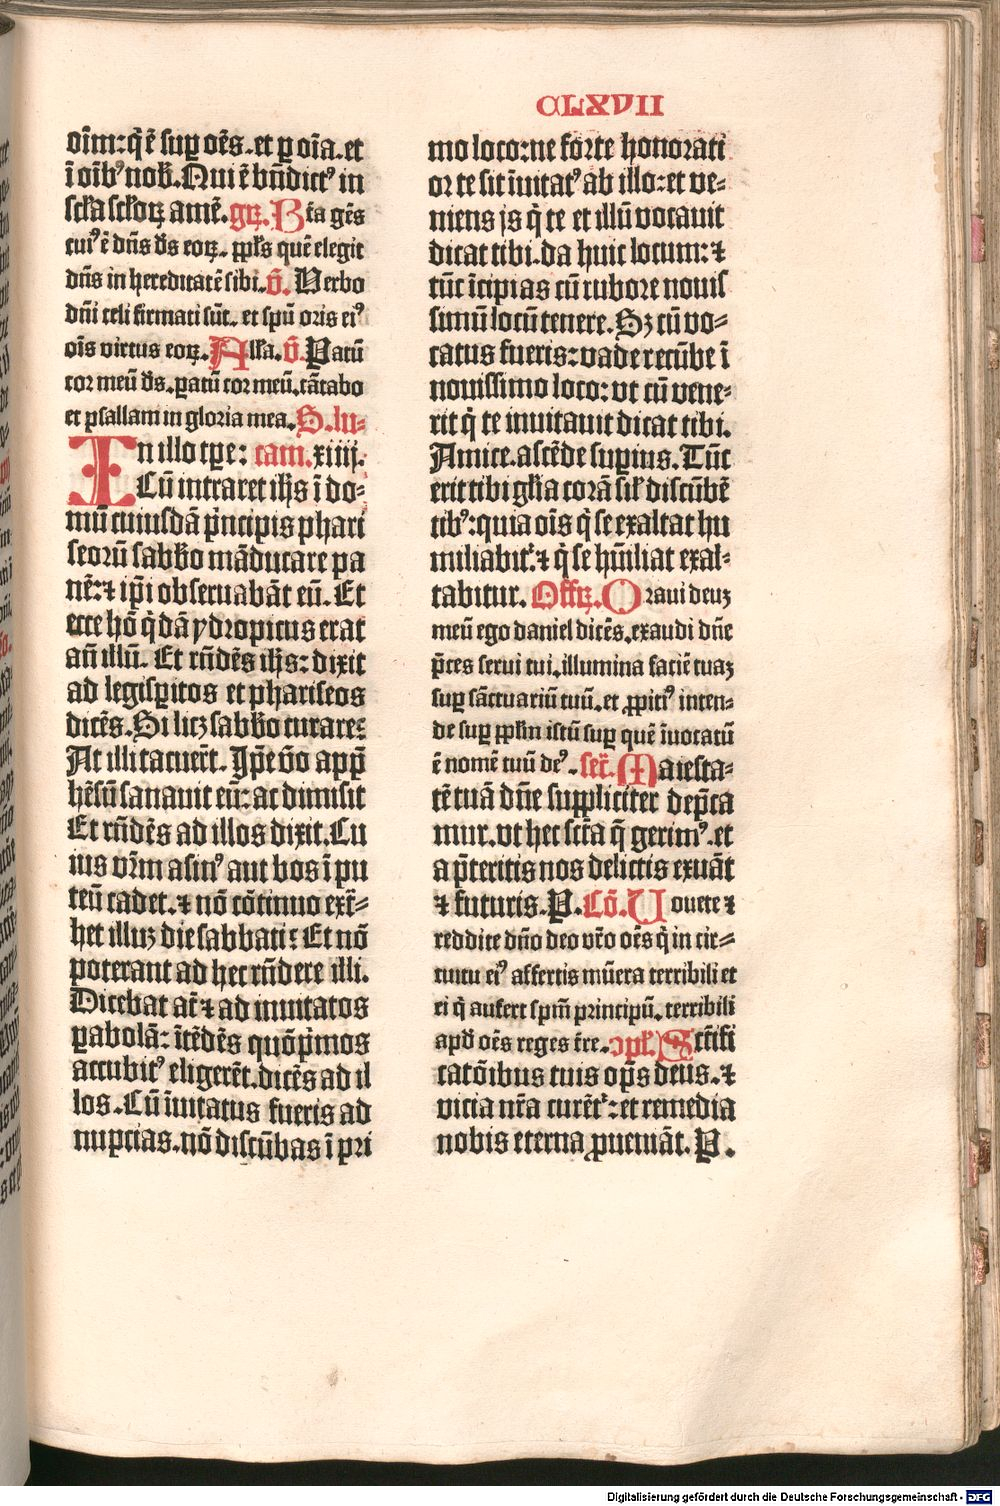 CLXVII
oīm: q̄ ē suꝑ oēs. et ꝑ oīa. et
ī oīb⁹ nob̄. Qui ē bn̄dict⁹ in
scl̄a scl̄oꝝ amē. gꝝ. Bt̄a gēs
cui⁹ ē dn̄s d̄s eoꝝ. ppl̄s quē elegit
dn̄s in hereditatē sibi. v̄. Verbo
dn̄i celi firmati sūt. et spū oris ei⁹
oīs virtus eoꝝ. All̄a. v̄. Patū
cor meū d̄s. patū cor meū. cātabo
et psallam in gloria mea. S. lu-
In illo tꝑe: cam. xiiij.
Cū intraret ih̄s ī do-
mū cuiusdā pͥncipis phari
seorū sabb̄o māducare pa
nē: ⁊ ip̄i obseruabāt eū. Et
ecce hō q̄dā ydropicus erat
an̄ illū. Et rn̄dēs ih̄s: dixit
ad legisꝑitos et phariseos
dicēs. Si licꝫ sabb̄o curare:
At illi tacuer̄t. Ip̄e v̄o app̄
hēsū sanauit eū: ac dimisit
Et rn̄dēs ad illos dixit. Cu
ius vr̄m asin⁹ aut bos ī pu
teū cadet. ⁊ nō cōtinuo ext̄-
het illuꝫ die sabbati: Et nō
poterant ad hec rn̄dere illi.
Dicebat at̄ ⁊ ad inuitatos
ꝑabolā: ītēdēs quō pͥmos
accubit⁹ eligerēt. dicēs ad il
los. Cū īuitatus fueris ad
nupcias. nō discūbas ī pri
mo loco: ne forte honorati
or te sit īuitat⁹ ab illo: et ve-
niens js q̄ te et illū vocauit
dicat tibi. da huic locum: ⁊
tūc īcipias cū rubore nouis
simū locū tenere. Sꝫ cū vo-
catus fueris: vade recūbe ī
nouissimo loco: vt cū vene-
rit q̄ te inuitauit dicat tibi.
Amice. ascēde suꝑius. Tūc
erit tibi gl̄ia corā sil̄ discūbē
tib⁹: quia oīs q̄ se exaltat hu
miliabit᷑. ⁊ q̄ se hūiliat exal-
tabitur. Offꝝ. Oraui deuꝫ
meū ego daniel dicēs. exaudi dn̄e
p̄ces serui tui. illumina faciē tuaꝫ
suꝑ sāctuariū tuū. et ꝓpiti⁹ inten-
de suꝑ ppl̄m istū suꝑ quē īuocatū
ē nomē tuū de⁹. secr̄. Maiesta-
tē tuā dn̄e suppliciter dep̄ca
mur. vt hec sctā q̄ gerim⁹. et
a p̄teritis nos delictis exuāt
⁊ futuris. P. Cō. Uouete ⁊
reddite dn̄o deo vr̄o oēs q̄ in cir-
cuitu ei⁹ affertis mūera terribili et
ei q̄ aufert spm̄ principū. terribili
apd̄ oēs reges tr̄e. ꝯpl̄. Sctīfi
catōibus tuis op̄s deus. ⁊
vicia nr̄a curēt᷑: et remedia
nobis eterna ꝓueniāt. P.
Digitalisierung gefördert durch die Deutsche Forschungsgemeinschaft - DFG